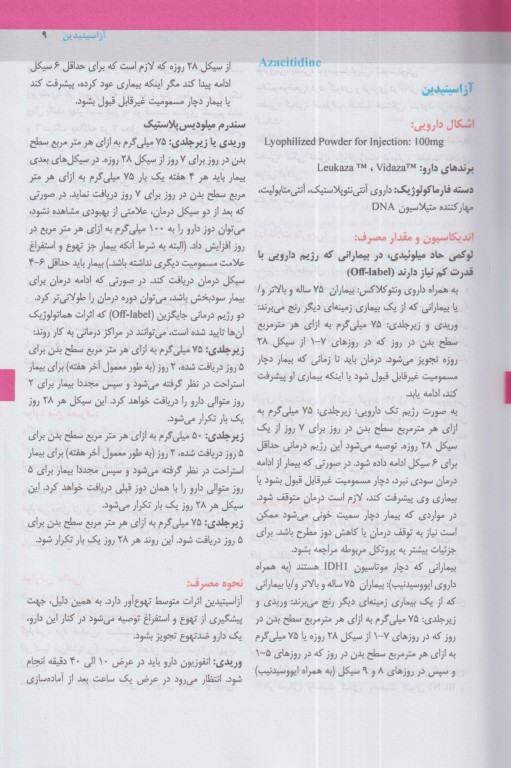 آزاسیتیدین ۹
Azacitidine
آزاسیتیدین
اشکال دارویی:
Lyophilized Powder for Injection: 100mg
برندهای دارو: Leukaza ™ ، Vidaza™
دسته فارماکولوژیک: داروی آنتی‌نئوپلاستیک، آنتی‌متابولیت،
مهارکننده متیلاسیون DNA
اندیکاسیون و مقدار مصرف:
لوکمی حاد میلوئیدی، در بیمارانی که رژیم دارویی با
قدرت کم نیاز دارند (Off-label)
به همراه داروی ونتوکلاکس: بیماران ۷۵ ساله و بالاتر و/
یا بیمارانی که از یک بیماری زمینه‌ای دیگر رنج می‌برند:
وریدی و زیرجلدی: ۷۵ میلی‌گرم به ازای هر مترمربع
سطح بدن در روز که در روزهای ۷–۱ از سیکل ۲۸
روزه تجویز می‌شود. درمان باید تا زمانی که بیمار دچار
مسمومیت غیرقابل قبول شود یا اینکه بیماری او پیشرفت
کند، ادامه یابد.
به صورت رژیم تک دارویی: زیرجلدی: ۷۵ میلی‌گرم به
ازای هر مترمربع سطح بدن در روز برای ۷ روز از یک
سیکل ۲۸ روزه. توصیه می‌شود این رژیم درمانی حداقل
برای ۶ سیکل ادامه داده شود. در صورتی که بیمار از ادامه
درمان سودی نبرد، دچار مسمومیت غیرقابل قبول بشود یا
بیماری وی پیشرفت کند، لازم است درمان متوقف شود.
در مواردی که بیمار دچار سمیت خونی می‌شود ممکن
است نیاز به توقف درمان یا کاهش دوز مطرح باشد. برای
جزئیات بیشتر به پروتکل مربوطه مراجعه بشود.
بیمارانی که دچار موتاسیون IDH1 هستند (به همراه
داروی ایووسیدنیب): بیماران ۷۵ ساله و بالاتر و/یا بیمارانی
که از یک بیماری زمینه‌ای دیگر رنج می‌برند: وریدی و
زیرجلدی: ۷۵ میلی‌گرم به ازای هر مترمربع سطح بدن در
روز که در روزهای ۷–۱ از سیکل ۲۸ روزه یا ۷۵ میلی‌گرم
به ازای هر مترمربع سطح بدن در روز که در روزهای ۵–۱
و سپس در روزهای ۸ و ۹ سیکل (به همراه ایووسیدنیب)
از سیکل ۲۸ روزه که لازم است که برای حداقل ۶ سیکل
ادامه پیدا کند مگر اینکه بیماری عود کرده، پیشرفت کند
یا بیمار دچار مسمومیت غیرقابل قبول بشود.
سندرم میلودیس‌پلاستیک
وریدی یا زیرجلدی: ۷۵ میلی‌گرم به ازای هر متر مربع سطح
بدن در روز برای ۷ روز از سیکل ۲۸ روزه. در سیکل‌های بعدی
بیمار باید هر ۴ هفته یک بار ۷۵ میلی‌گرم به ازای هر متر
مربع سطح بدن در روز برای ۷ روز دریافت نماید. در صورتی
که بعد از دو سیکل درمان، علامتی از بهبودی مشاهده نشود،
می‌توان دوز دارو را به ۱۰۰ میلی‌گرم به ازای هر متر مربع در
روز افزایش داد. (البته به شرط آنکه بیمار جز تهوع و استفراغ
علامت مسمومیت دیگری نداشته باشد.) بیمار باید حداقل ۶–۴
سیکل درمان دریافت کند. در صورتی که ادامه درمان برای
بیمار سودبخش باشد، می‌توان دوره درمان را طولانی‌تر کرد.
دو رژیم درمانی جایگزین (Off-label) که اثرات هماتولوژیک
آن‌ها تایید شده است، می‌توانند در مراکز درمانی به کار روند:
زیرجلدی: ۷۵ میلی‌گرم به ازای هر متر مربع سطح بدن برای
۵ روز دریافت شده، ۲ روز (به طور معمول آخر هفته) برای بیمار
استراحت در نظر گرفته می‌شود و سپس مجددا بیمار برای ۲
روز متوالی دارو را دریافت خواهد کرد. این سیکل هر ۲۸ روز
یک بار تکرار می‌شود.
زیرجلدی: ۵۰ میلی‌گرم به ازای هر متر مربع سطح بدن برای
۵ روز دریافت شده، ۲ روز (به طور معمول آخر هفته) برای بیمار
استراحت در نظر گرفته می‌شود و سپس مجددا بیمار برای ۵
روز متوالی دارو را با همان دوز قبلی دریافت خواهد کرد. این
سیکل هر ۲۸ روز یک بار تکرار می‌شود.
زیرجلدی: ۷۵ میلی‌گرم به ازای هر متر مربع سطح بدن برای
۵ روز دریافت شود. این روند هر ۲۸ روز یک بار تکرار شود.
نحوه مصرف:
آزاسیتیدین اثرات متوسط تهوع‌آور دارد. به همین دلیل، جهت
پیشگیری از تهوع و استفراغ توصیه می‌شود در کنار این دارو،
یک دارو ضدتهوع تجویز بشود.
وریدی: انفوزیون دارو باید در عرض ۱۰ الی ۴۰ دقیقه انجام
شود. انتظار می‌رود در عرض یک ساعت بعد از آماده‌سازی